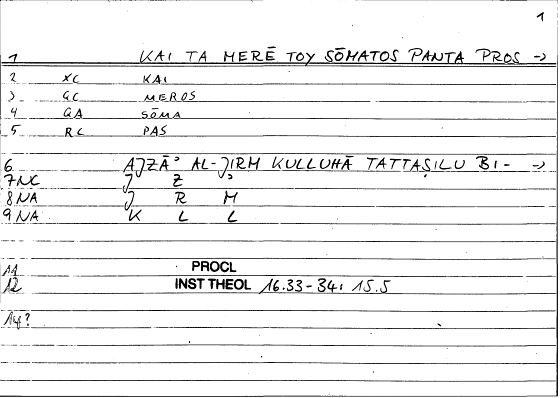 1
1 KAI TA MERĒ TOY SŌMATOS PANTA PROS →
2 XC KAI
3 GC MEROS
4 GA SŌMA
5 RC PAS
6 AJZĀʾ AL-JIRM KULLUHĀ TATTAṢILU BI- →
7NC J Z ʾ
8NA J R M
9NA K L L
11 PROCL
12 INST THEOL 16.33-34: 15.5
14?